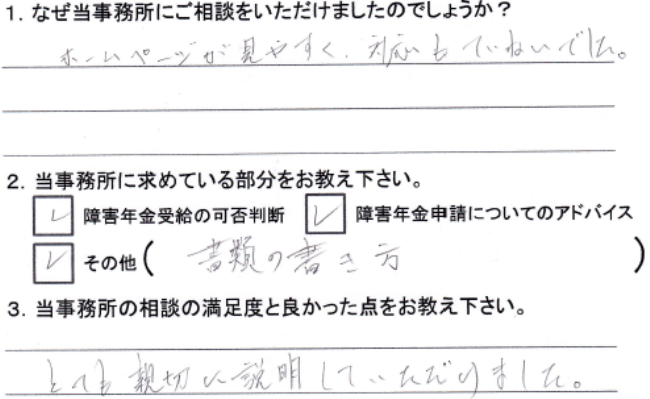 1. なぜ当事務所にご相談をいただけましたのでしょうか？
ホームページが見やすく、対応もていねいでした。
2. 当事務所に求めている部分をお教え下さい。
レ 障害年金受給の可否判断 レ 障害年金申請についてのアドバイス
レ その他( 書類の書き方 )
3. 当事務所の相談の満足度と良かった点をお教え下さい。
とても親切に説明していただけました。